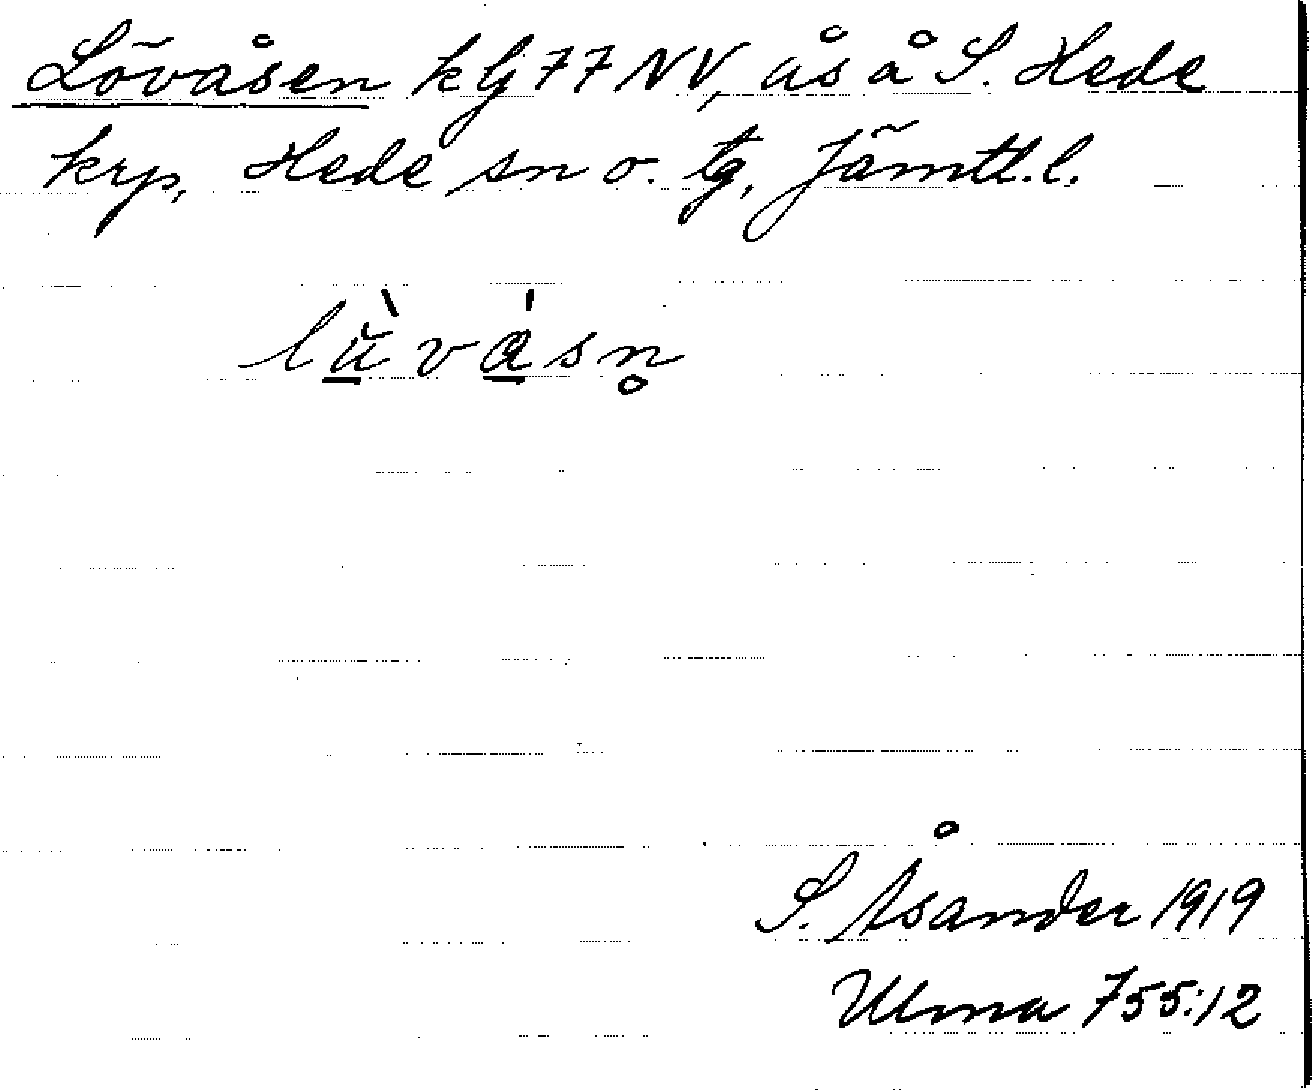 Lövåsen klj 77 NV, ås å S. Hede
krp, Hede sn o. tg, Jämtl. l.
lùvásn̥
S. Åsander 1919
Ulma 755:12